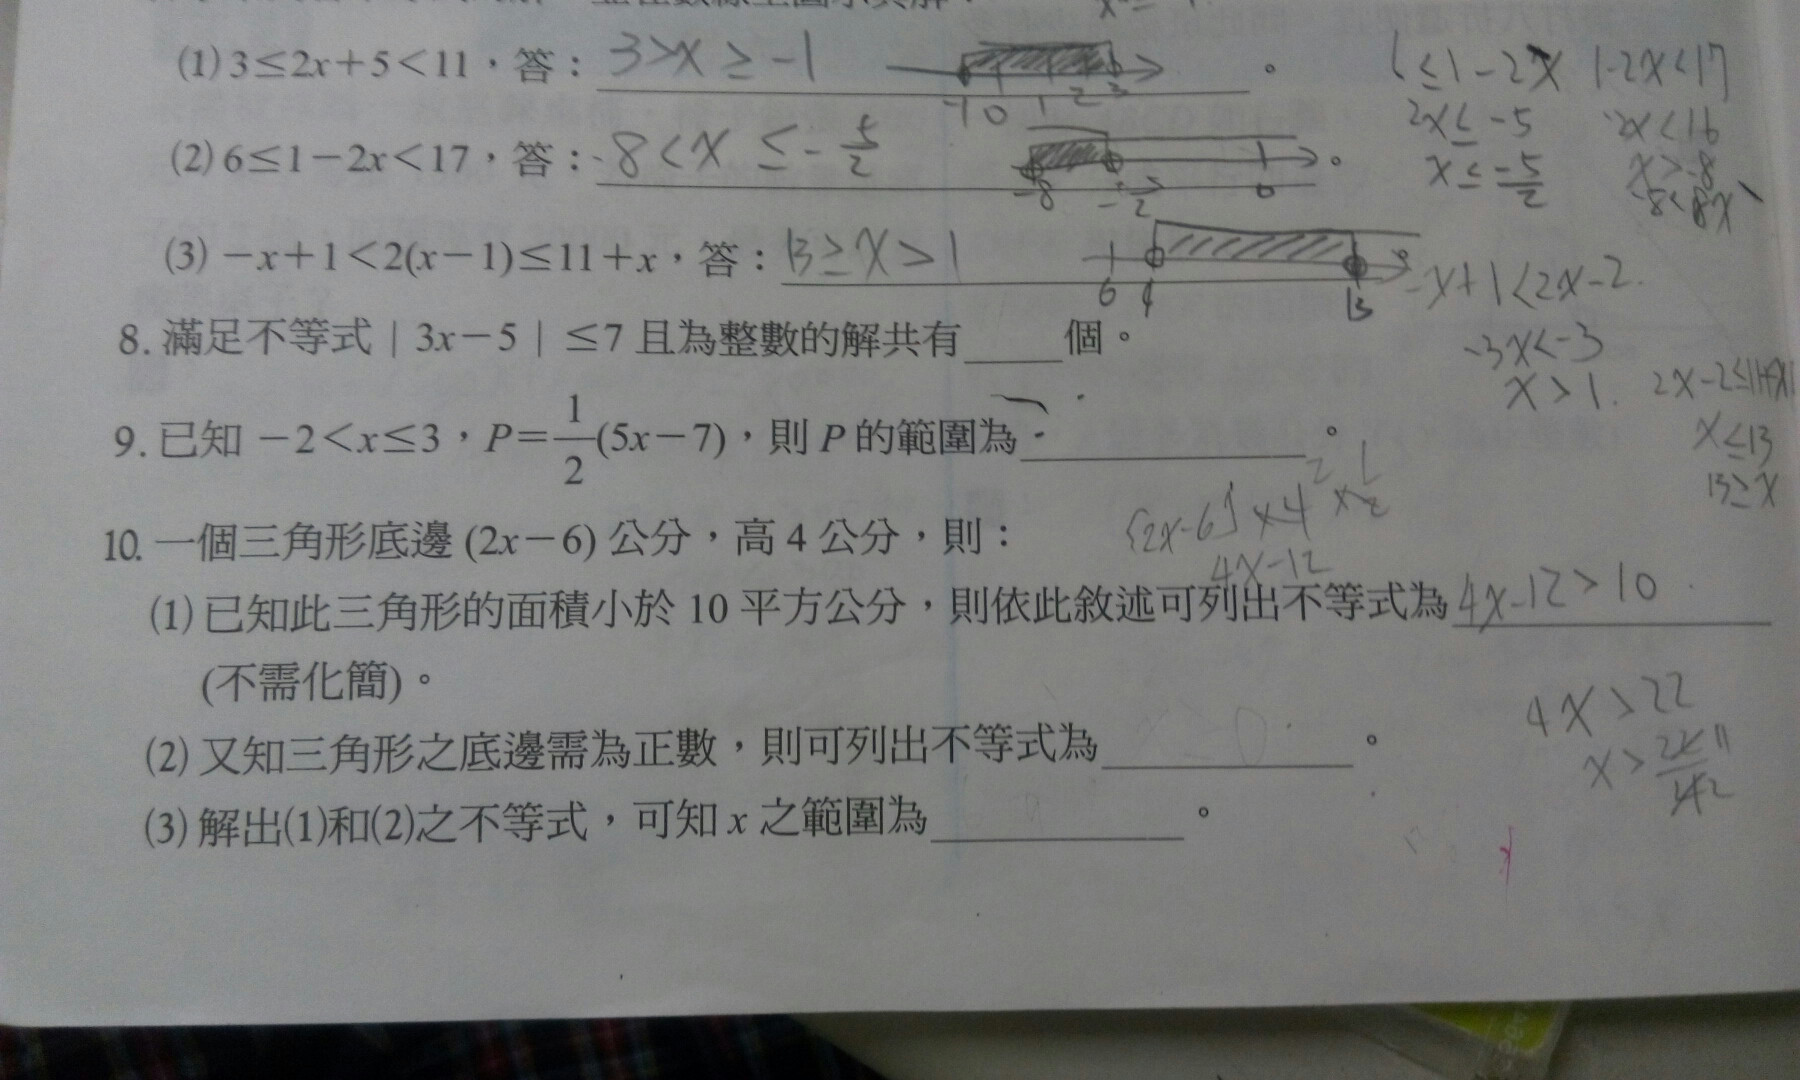 (1) 3≤2x+5<11，答：3>x≥-1
-1 0 1 2 3 。
(2) 6≤1-2x<17，答：-8<x≤-5/2
-8 0 。
(3) -x+1<2(x-1)≤11+x，答：13≥x>1
13
≤1-2x 1-2x<17
2x≤-5 -2x<16
x≤-5/2 x>-8
-x+1<2x-2
-3x<-3
x>1. 2x-2≤11+x
x≤13
13≥x
8. 滿足不等式 | 3x-5 | ≤7 且為整數的解共有____個。
9. 已知 -2<x≤3，P=1/2(5x-7)，則 P 的範圍為____。
10. 一個三角形底邊 (2x-6) 公分，高 4 公分，則：
(2x-6)×4×1/2
4x-12
(1) 已知此三角形的面積小於 10 平方公分，則依此敘述可列出不等式為 4x-12>10
(不需化簡)。
4x>22
x>
(2) 又知三角形之底邊需為正數，則可列出不等式為____。
(3) 解出(1)和(2)之不等式，可知 x 之範圍為____。